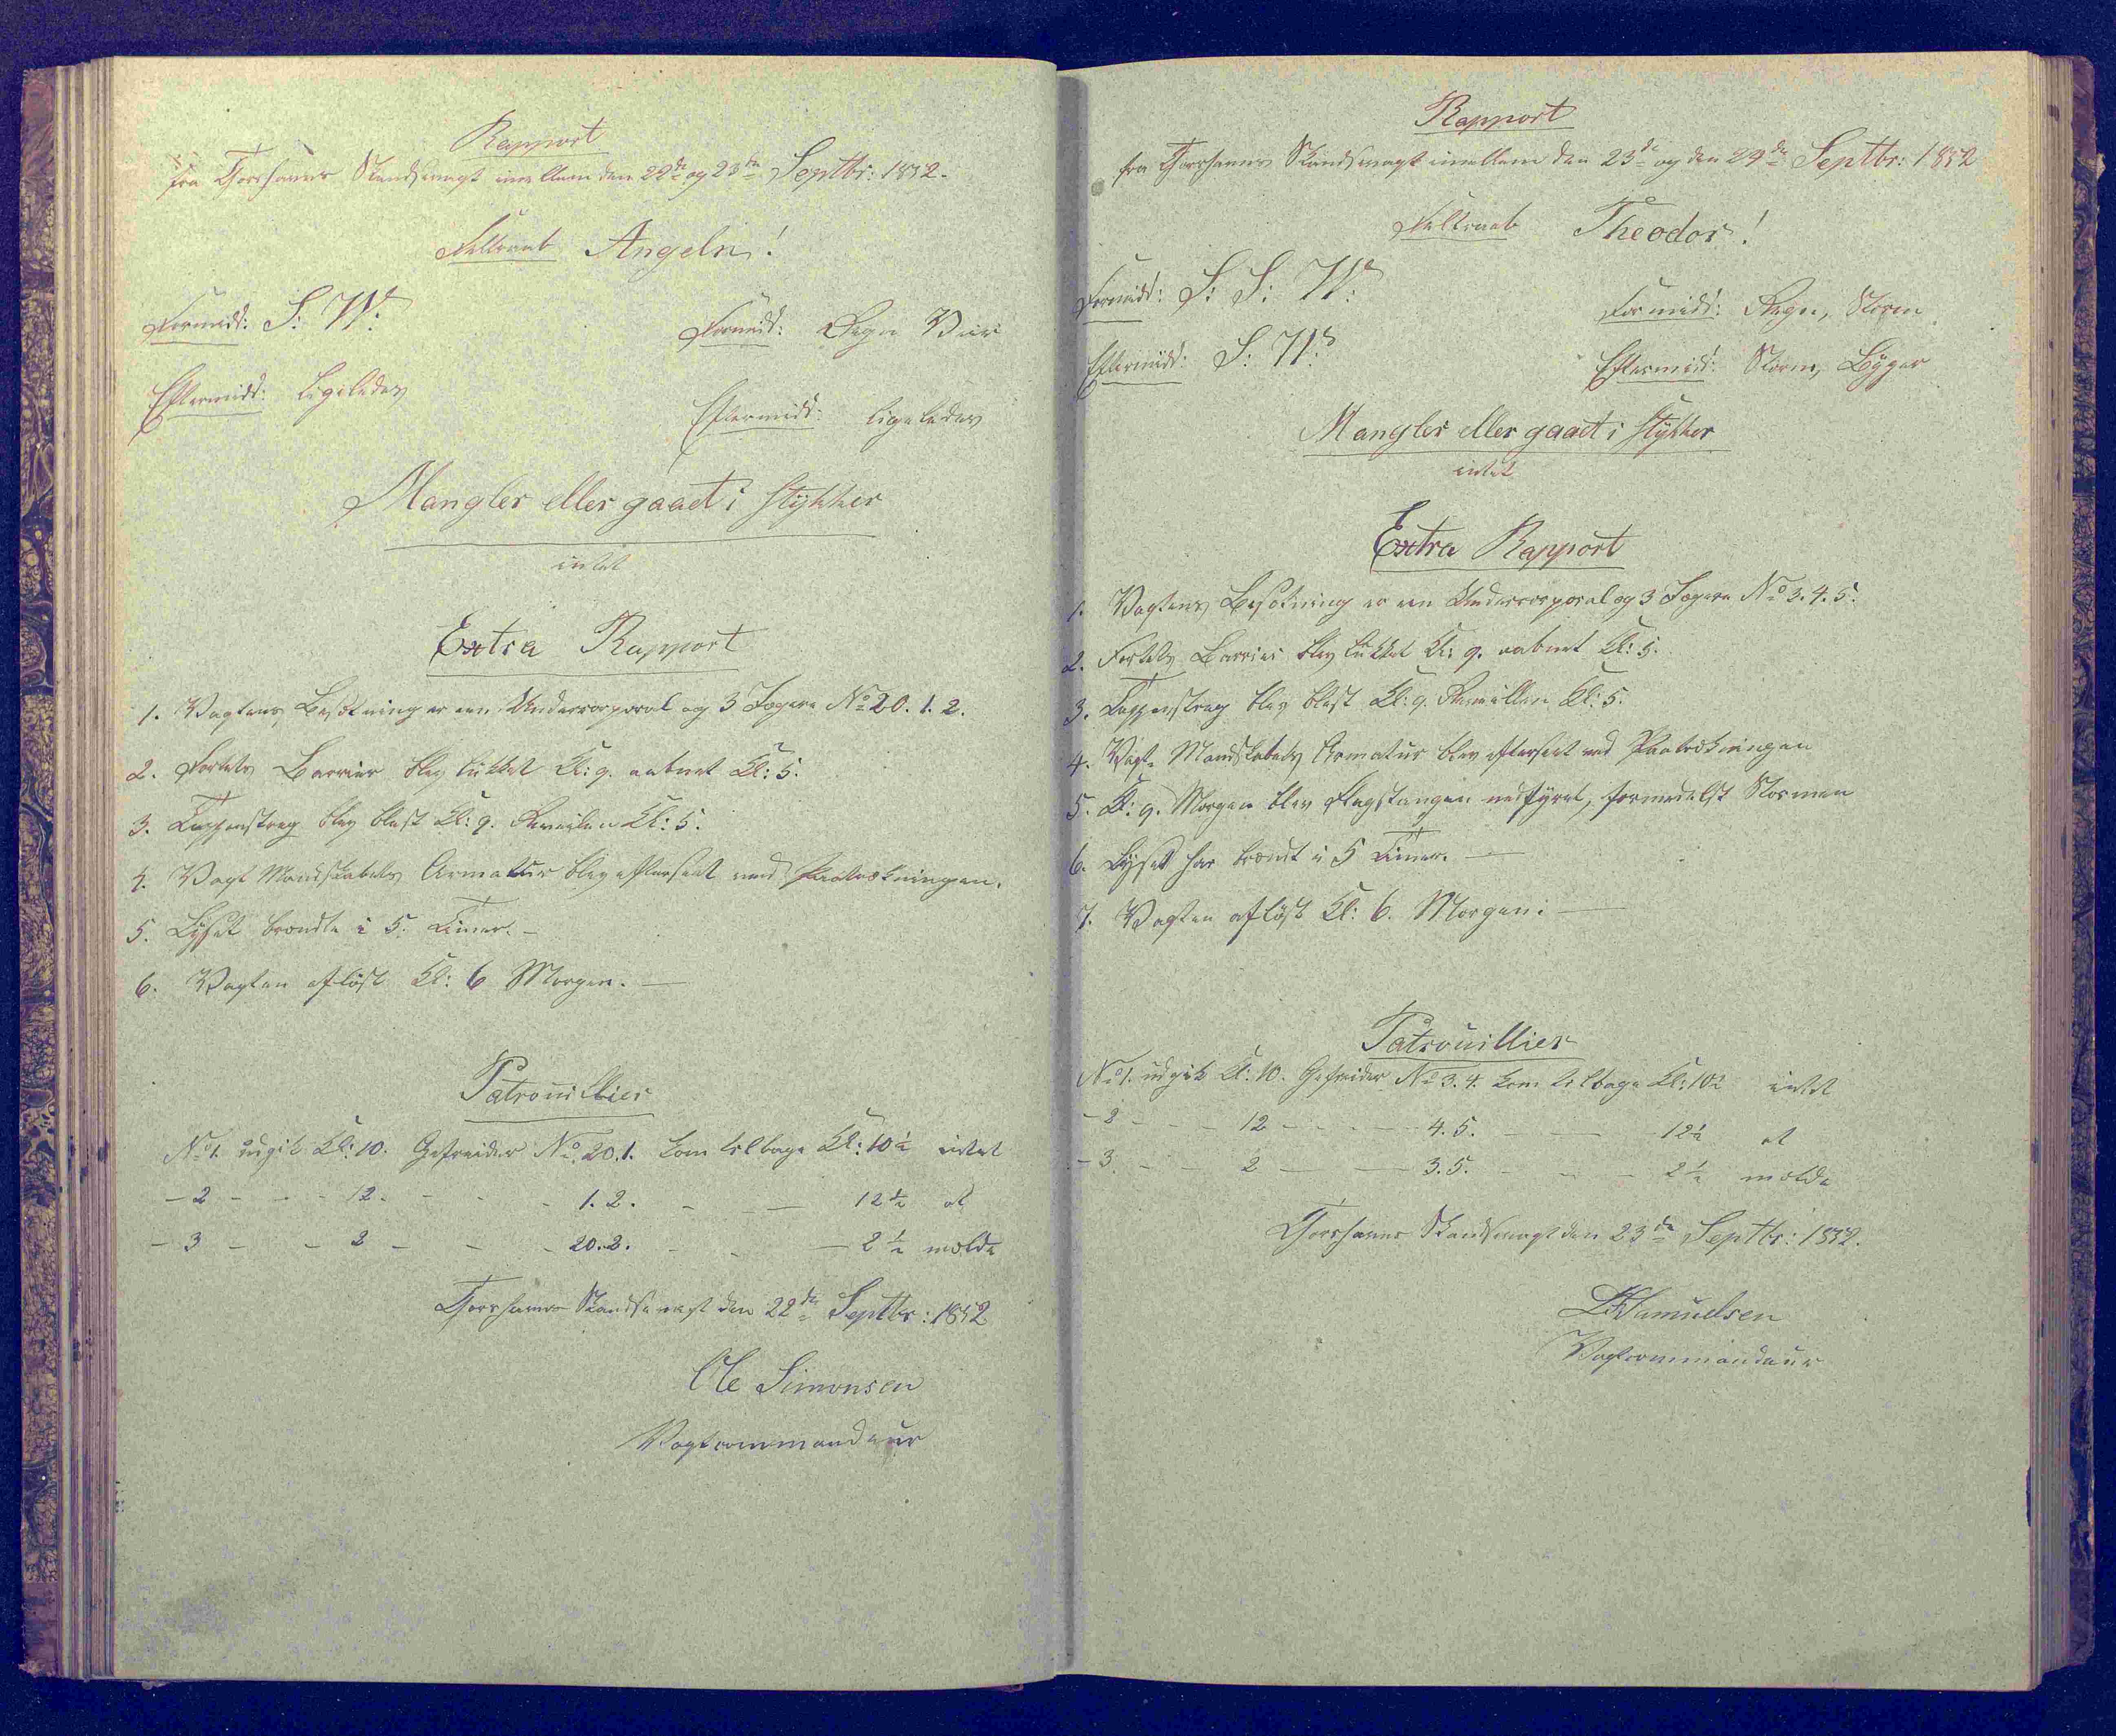 Rapport
fra Thorshavns Skandsevagt imellem den 22de og 23de Septbr: 1852.
Feltraab Angeln!
Formidd: S: W:
Formidd: Regn Bier
Eftermidd: ligeledes
Eftermidd: ligeledes
Mangler eller gaaet i Stykker
intet
Extra Rapport
1. Vagtens Besætning er een Undercorporal og 3 Jægere No 20. 1. 2.
2. Fortets Barrier blev lukket Kl: 9. aabnet Kl: 5.
3. Tappenstreg blev blæst Kl: 9. Reveilen Kl: 5.
4. Vagt Mandskabets Armatur blev efterseet ved Paatrækningen.
5. Lyset brændte i 5. Timer. -
6. Vagten afløst Kl: 6 Morgen. —
Patrouillier
No 1. udgik Kl: 10. Gefreider No. 20. 1. kom tilbage Kl: 10½ intet
- 2 - - - 12. - - - 1. 2. - - — 12½ at
- 3 - - 2 - - - 20. 2. - - — 2½ melde
Thorshavns Skandsevagt den 22de Septbr: 1852
Ole Simonsen
Vagtcommandeur
Rapport
fra Thorshavns Skandsevagt imellem den 23de og den 24de Septbr: 1852
Feltraab Theodor!
Formidd: S: S: W:
Formidd: Regn, Storm
Eftermidd: S: W:
Eftermidd: Storm, Byger
Mangler eller gaaet i Stykker
intet
Extra Rapport
1. Vagtens Besætning er een Undercorporal og 3 Jægere No 3. 4. 5.
2. Fortets Barrier blev lukket Kl: 9. aabnet Kl: 5.
3. Tappenstreg blev blæst Kl: 9. Reveillen Kl: 5.
4. Vagt Mandskabets Armatur blev efterseet ved Paatrækningen
5. Kl: 9. Morgen blev Flagstangen nedfyret, formedelst Stormen
6. Lyset har brændt i 5 Timer. —
7. Vagten afløst Kl: 6. Morgen: —
Patrouillier
No 1. udgik Kl: 10. Gefreider No 3. 4. kom tilbage Kl: 10½ intet
- 2 - - - 12 - - - - 4. 5. - - - 12½ at
- 3. - - 2 — — 3. 5. - - - 2½ melde
Thorshavns Skandsevagt den 23de Septbr: 1852.
Samuelsen
Vagtcommandeur